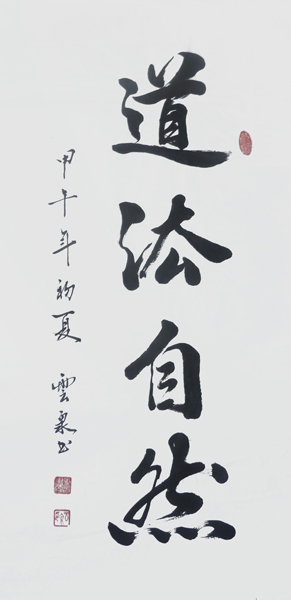 道法自然
甲午年初夏 雲泉书